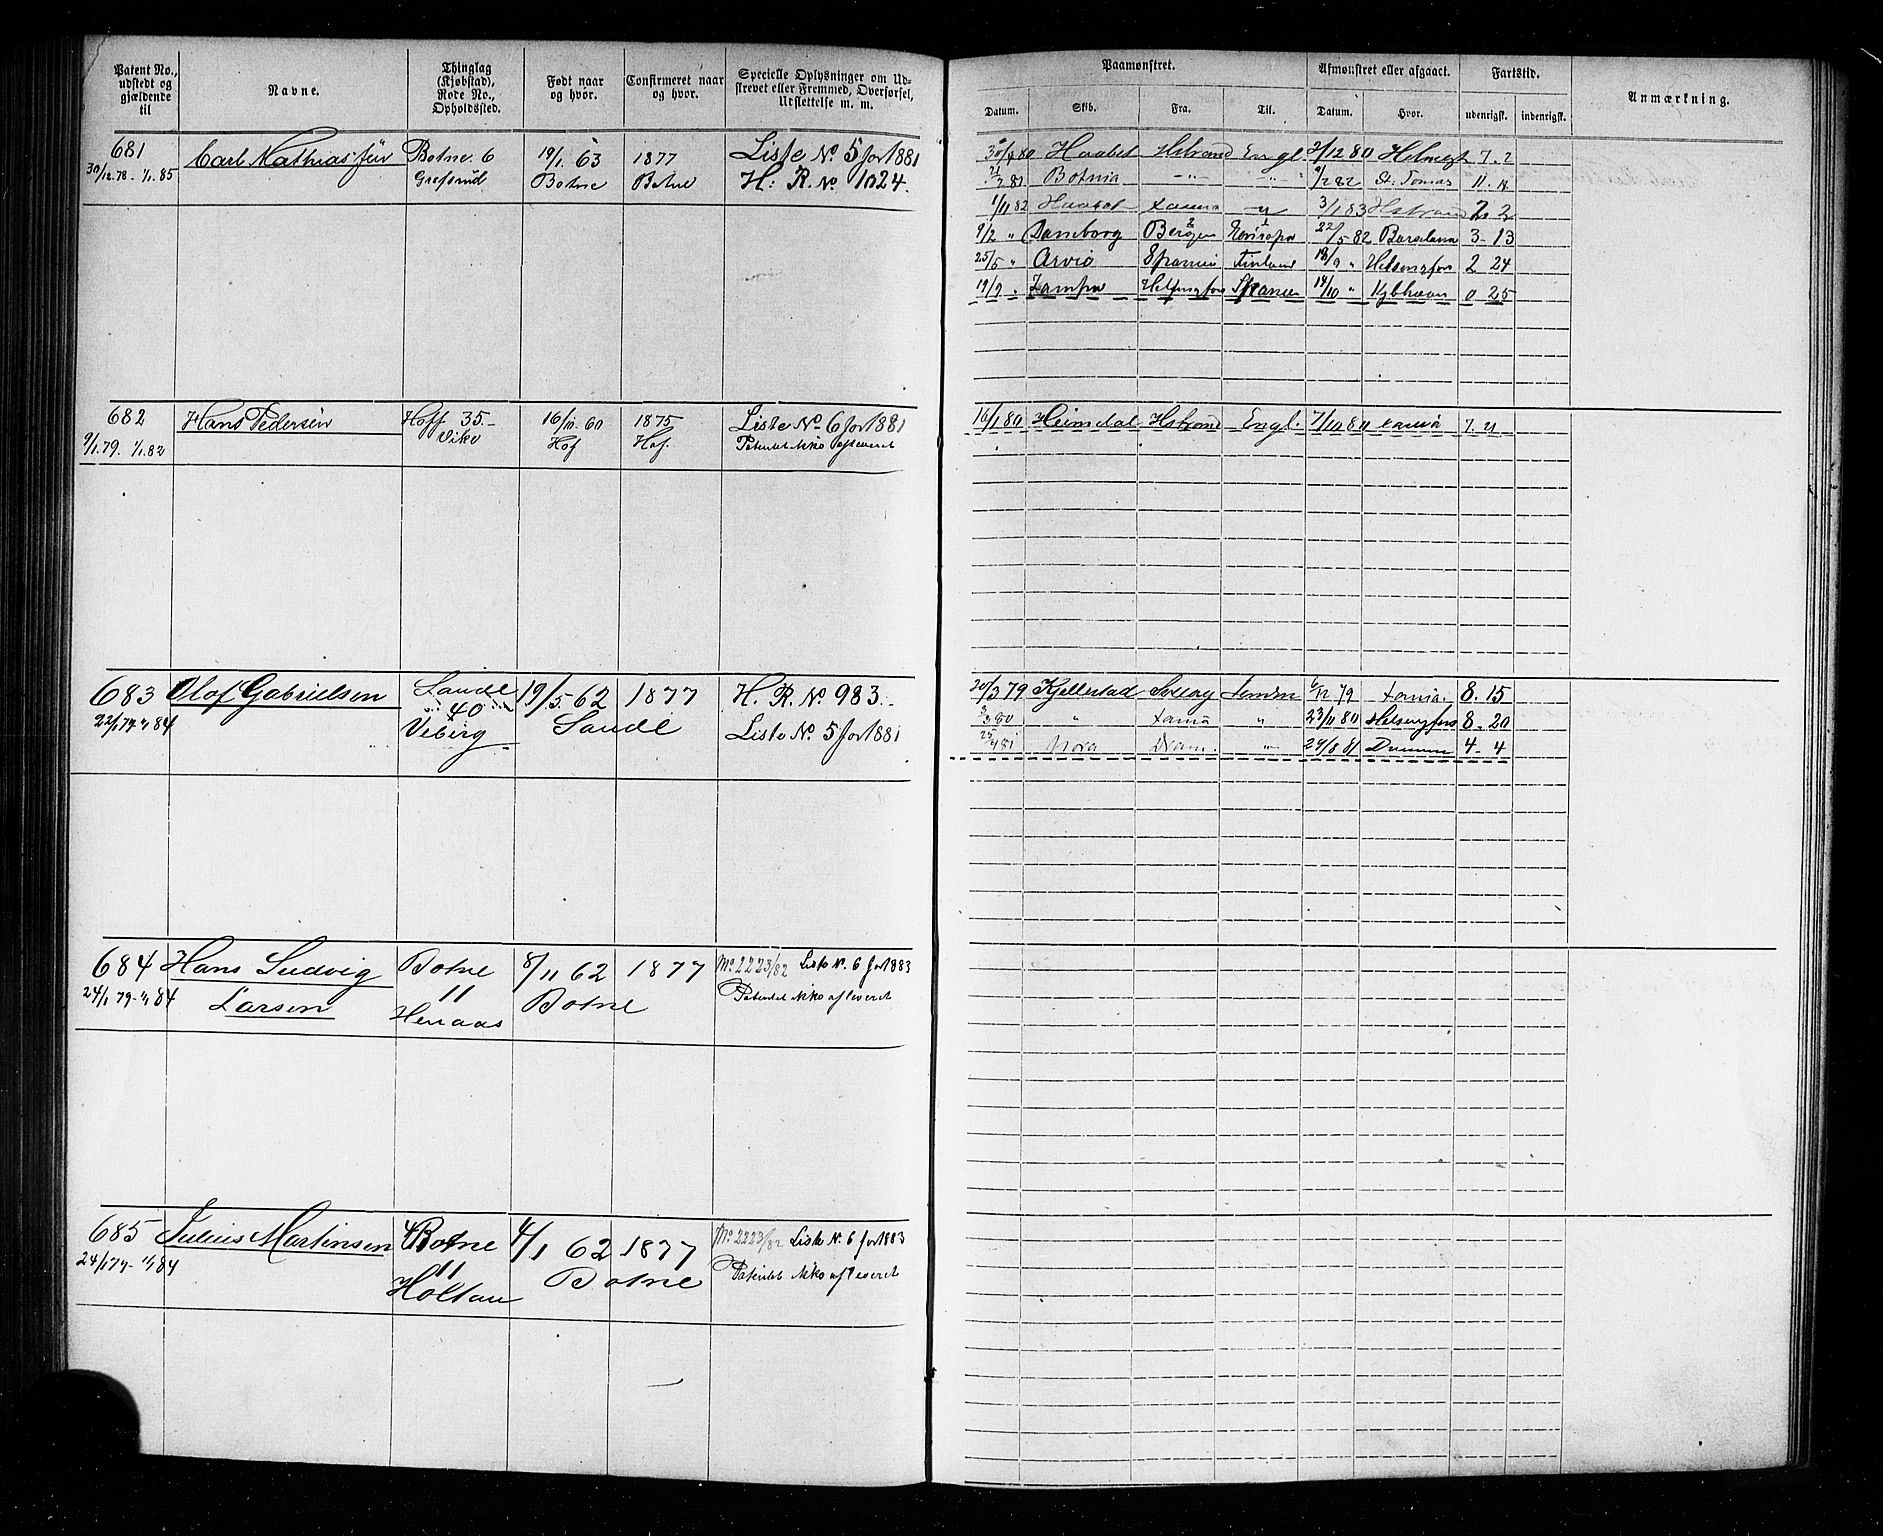 Patent No., udstedt og gjældende til
Navne.
Thinglag (Kjøbstad), Rode No., Opholdssted.
Født naar og hvor.
Confirmeret naar og hvor.
Specielle Oplysninger om Udskrevet eller Fremmed, Overførsel, Udslettelse m. m.
Paamønstret.
Afmønstret eller afgaaet.
Fartstid.
Anmærkning.
Datum. Skib. Fra. Til. Datum. Hvor. udenrigsk. indenrigsk.
681 Carl Mathias Botne 6 19/1 63 1877 Liste No 5 for 1881
30/12 78 - 1/1 85 Botne Botne H: R. No 1024.
80 Haabet Hstrand Engl 2/12 80 7. 2
81 Botnia -"- 9/2 82 St. Tomas 11.
1/11 82 Haabet 3/1 83 Hstrand 2. 2
9/2 " Danborg Bergen 22/5 82 3 - 13
25/5 " Spanien Finland 18/9 " Helsingfors 2 24
19/9 . Helsingfors Spanien 14/10 " Kjbhavn 0 25
682 Hans Pedersen Hoff 35. 16/10 60 1875 Liste No 6 for 1881
9/1 79. 1/1 82 Hof Hof. Patentet ikke afleveret
16/1 80 Heimdal Hstrand Engl. 7/10 80 7. 21
683 Olof Gabrielsen Sande 40 19/5 62 1877 H. R. No 983.
22/1 79 - 1/1 84 Veberg Sande Liste No 5 for 1881
79 Kjellestad 6/12 79 8. 15
80 " " 23/11 80 Helsingfors 8 - 20
81 Nora Dram. -"- 29/8 81 4 - 4
684 Hans Ludvig Botne 8/11 62 1877 Mo 2223/82 Liste No. 6 for 1883
24/1 79 - 1/1 84 Larsen 11 Botne Patentet ikke afleveret
Henaas
685 Julius Martinsen Botne 4/1 62 1877 Mo 2223/82 Liste No. 6 for 1883
24/1 79 - 1/1 84 11 Botne Patentet ikke afleveret
Holtan